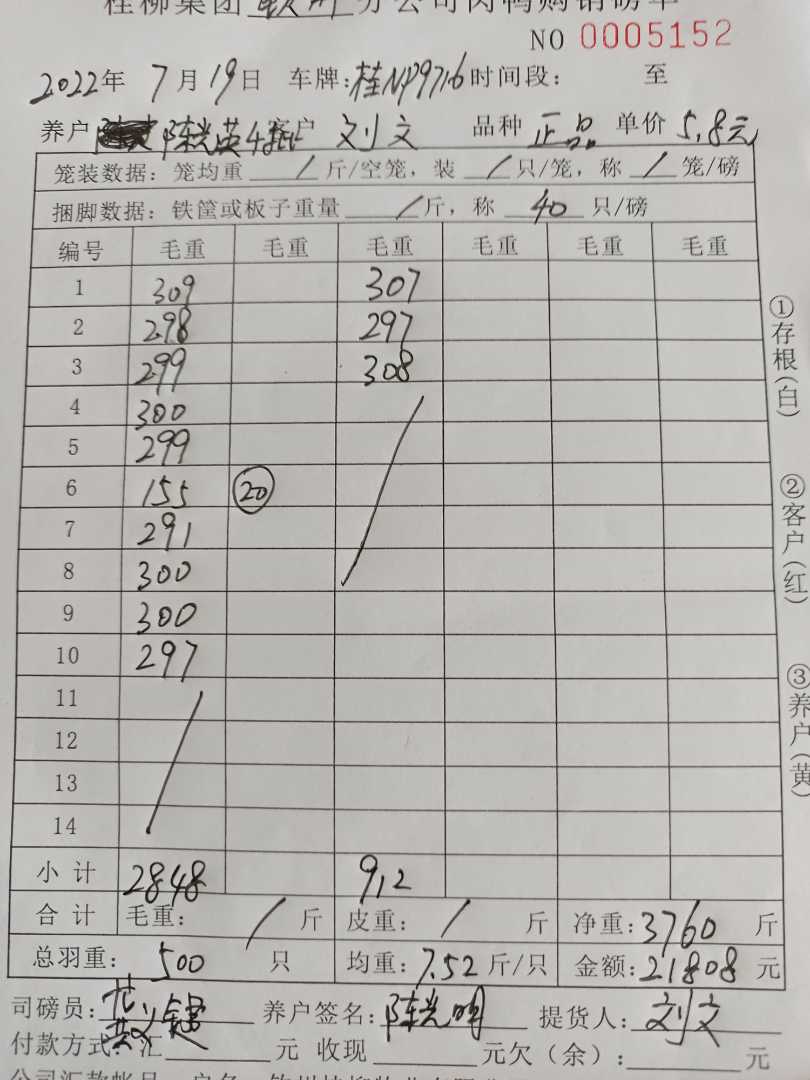 桂柳集团钦州分公司肉鸭购销磅单
NO 0005152
2022年 7月19日 车牌:桂NP9716 时间段: 至
养户 陈光英 客户 刘文 品种 正品 单价 5.8元
笼装数据: 笼均重 / 斤/空笼, 装 / 只/笼, 称 / 笼/磅
捆脚数据: 铁筐或板子重量 / 斤, 称 40 只/磅
编号 毛重 毛重 毛重 毛重 毛重 毛重
1 309 307
2 298 297
3 299 308
4 300
5 299
6 155 20
7 291
8 300
9 300
10 297
11
12
13
14
小计 2848 912
合计 毛重: / 斤 皮重: / 斤 净重:3760 斤
总羽重: 500 只 均重:7.52斤/只 金额:21808元
司磅员: 养户签名:陈光明 提货人:刘文
付款方式: 汇 元 收现 元欠(余): 元
①存根(白)
②客户(红)
③养户(黄)